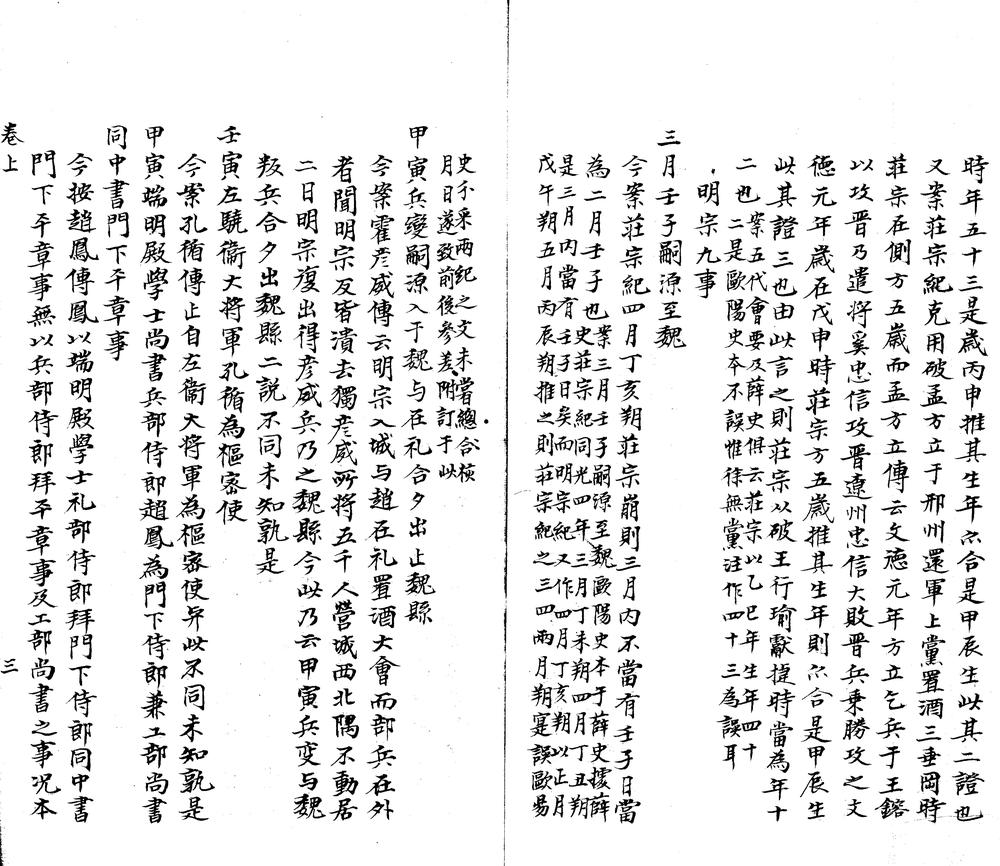 時年五十三是歲丙申推其生年亦合是甲辰生此其二證也
又案莊宗紀克用破孟方立于邢州還軍上黨置酒三垂岡時
莊宗在側方五歲而孟方立傳云文德元年方立乞兵于王鎔
以攻晉乃遣將奚忠信攻晉遼州忠信大敗晉兵乘勝攻之文
德元年歲在戊申時莊宗方五歲推其生年則亦合是甲辰生
此其證三也由此言之則莊宗以破王行瑜獻捷時當為年十
二也案五代會要及薛史俱云莊宗以乙巳年生年四十
二是歐陽史本不誤惟徐無黨注作四十三為誤耳
明宗九事
三月壬子嗣源至魏
今案莊宗紀四月丁亥朔莊宗崩則三月內不當有壬子日當
為二月壬子也案三月壬子嗣源至魏歐陽史本于薛史據薛
史莊宗紀同光四年三月丁未朔四月丁丑朔
是三月內當有壬子日矣而明宗紀又作四月丁亥朔以正月
戊午朔五月丙辰朔推之則莊宗紀之三四兩月朔寔誤歐昜
史不采兩紀之文未嘗總合核
月日遂致前後參差附訂于此
甲寅兵變嗣源入于魏与在礼合夕出止魏縣
今案霍彦威傳云明宗入城与趙在礼置酒大會而部兵在外
者聞明宗反皆潰去獨彦威所將五千人營城西北隅不動居
二日明宗復出得彦威兵乃之魏縣今此乃云甲寅兵变与魏
叛兵合夕出魏縣二說不同未知孰是
壬寅左驍衞大將軍孔循為樞密使
今案孔循傳止自左衞大將軍為樞密使与此不同未知孰是
甲寅端明殿學士尚書兵部侍郎趙鳳為門下侍郎兼工部尚書
同中書門下平章事
今按趙鳳傳鳳以端明殿學士礼部侍郎拜門下侍郎同中書
門下平章事無以兵部侍郎拜平章事及工部尚書之事况本
卷上 三